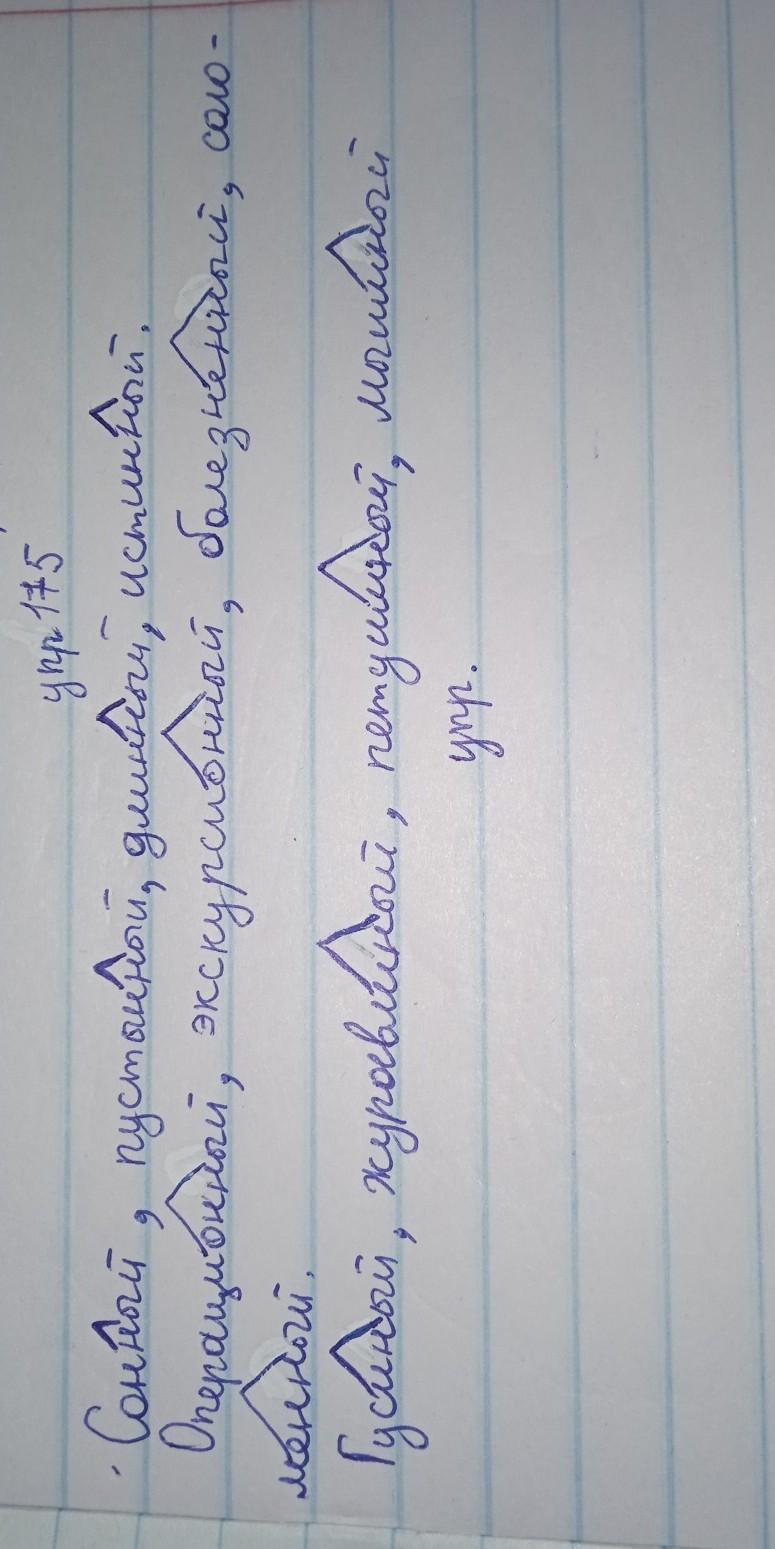 упр 175
Сонный, пустынный, длинный, истинный.
Операционный, экскурсионный, болезненный, соло-
менный.
Гусиный, журавлиный, петушиный, мышиный
упр.